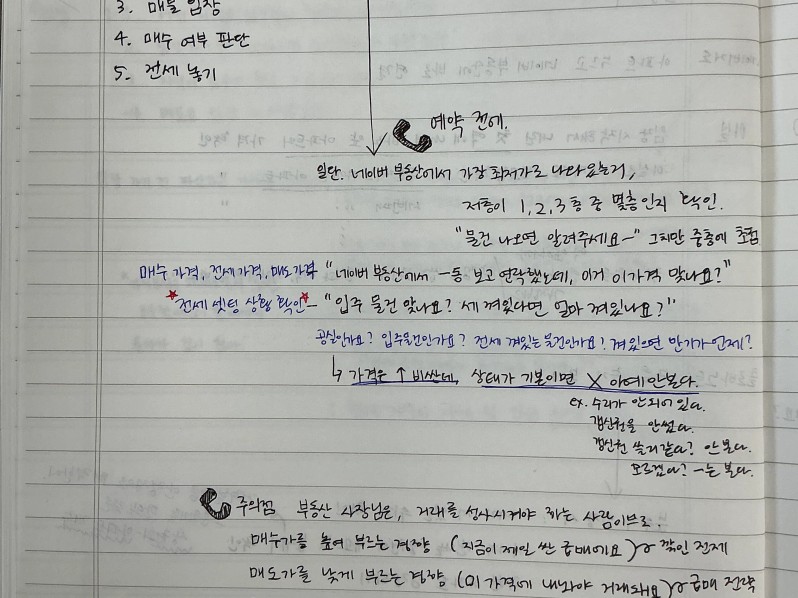 3. 매물 임장
4. 매수 여부 판단
5. 전세 놓기
예약 전에.
일단. 네이버 부동산에서 가장 최저가로 나와있는거,
저층이 1, 2, 3층 중 몇층인지 확인.
"물건 나오면 알려주세요~" 그치만 중층에 초점
매수가격, 전세가격, 매도가격 "네이버 부동산에서 ~동 보고 연락했는데, 이거 이가격 맞나요?"
★전세 셋팅 상황 확인★ - "입주 물건 맞나요? 세 껴있다면 얼마 껴있나요?"
공실인가요? 입주물건인가요? 전세 껴있는 물건인가요? 껴있으면 만기가 언제?
↳ 가격은 ↑ 비싼데, 상태가 기본이면 X 아예 안본다.
ex. 수리가 안되어 있다.
갱신권을 안썼다.
갱신권 쓸거같다? 안본다.
모르겠다? ~는 본다.
주의점 부동산 사장님은, 거래를 성사시켜야 하는 사람이므로.
매수가를 높여 부르는 경향 (지금이 제일 싼 급매에요) 깎인 전제
매도가를 낮게 부르는 경향 (이 가격에 내놔야 거래돼요) 급매 전략